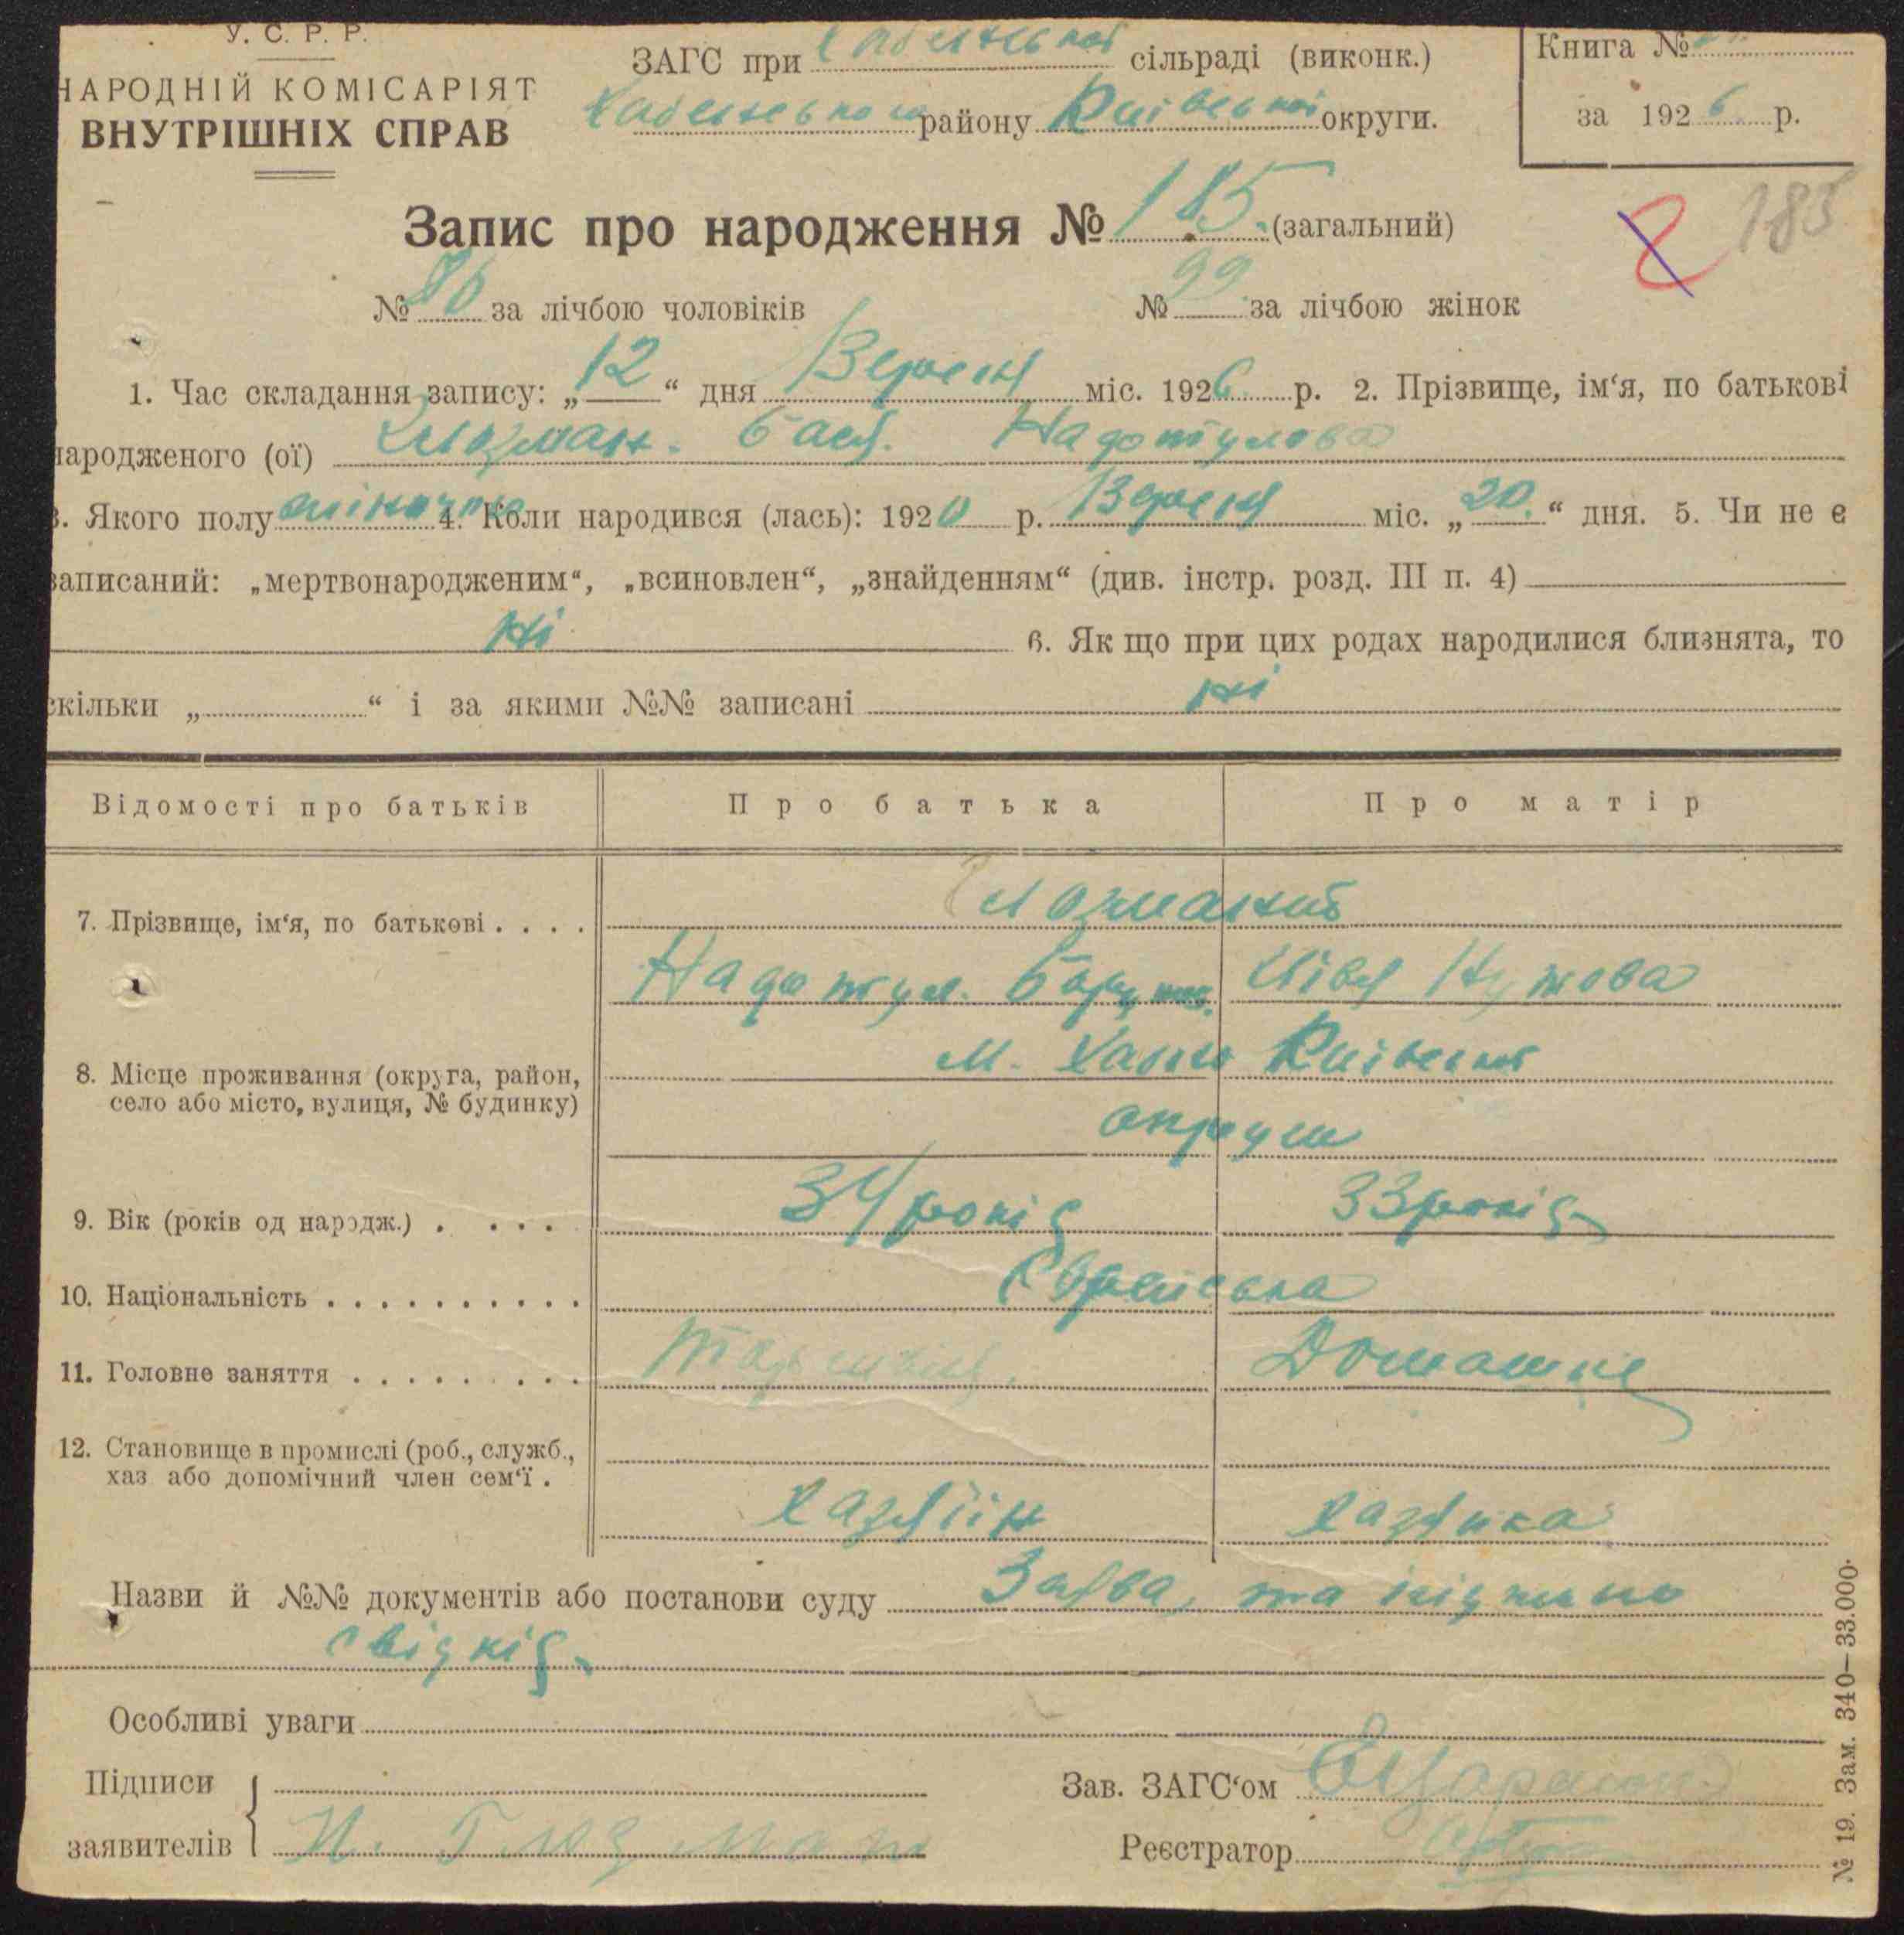 У. С. Р. Р.
НАРОДНІЙ КОМІСАРІЯТ
ВНУТРІШНІХ СПРАВ
ЗАГС при Кабенської сільраді (виконк.)
Кабенського району Київської округи.
Книга №
за 1926 р.
Запис про народження № 185. (загальний)
185
№ 86 за лічбою чоловіків № 99 за лічбою жінок
1. Час складання запису: „12“ дня Вересня міс. 1926 р. 2. Прізвище, ім'я, по батькові
народженого (ої) Глозман. Бася.
3. Якого полу жіночн 4. Коли народився (лась): 1920 р. Вересня міс. „20.“ дня. 5. Чи не є
записаний: „мертвонародженим“, „всиновлен“, „знайденням“ (див. інстр. розд. III п. 4)
ні 6. Як що при цих родах народилися близнята, то
скільки „ “ і за якими №№ записані ні
Відомості про батьків Про батька Про матір
7. Прізвище, ім‘я, по батькові . . . . Глозмании
Нутова
8. Місце проживання (округа, район, село або місто, вулиця, № будинку) м. Київської
округи
9. Вік (років од народж.) . . . . 34 років 33 років
10. Національність . . . . . . . . . . Єврейська
11. Головне заняття . . . . . . . . . Домашнє
12. Становище в промислі (роб., служб., хаз або допомічний член сем‘ї . Хазяїн Хазяйка
Назви й №№ документів або постанови суду Заява, та
свідків.
Особливі уваги
Підписи
заявителів Н. Глозман
Зав. ЗАГС‘ом
Реєстратор
№ 19. Зам. 340—33.000.